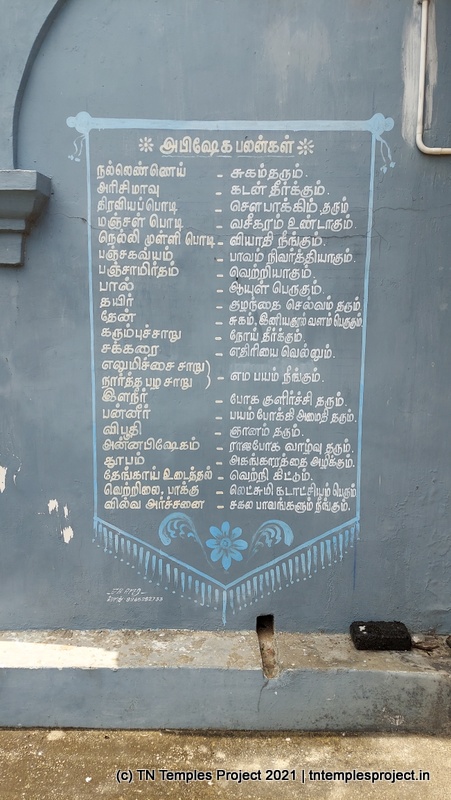 அபிஷேக பலன்கள்
நல்லெண்ணெய் - சுகம்தரும்.
அரிசிமாவு - கடன் தீர்க்கும்.
திரவியப்பொடி - சௌபாக்கிம் தரும்
மஞ்சள் பொடி - வசீகரம் உண்டாகும்.
நெல்லி முள்ளி பொடி - வியாதி நீங்கும்.
பஞ்சகவ்யம் - பாவம் நிவர்த்தியாகும்.
பஞ்சாமிர்தம் - வெற்றியாகும்.
பால் - ஆயுள் பெருகும்.
தயிர் - குழந்தை செல்வம் தரும்
தேன் - சுகம், இனியகுரல் வளம் பெருகும்
கரும்புச்சாறு - நோய் தீர்க்கும்.
சக்கரை - எதிரியை வெல்லும்.
எலுமிச்சை சாறு)
நார்த்த பழ சாறு ) - எம பயம் நீங்கும்.
இளநீர் - போக குளிர்ச்சி தரும்.
பன்னீர் - பயம் போக்கி அமைதி தரும்.
விபூதி - ஞானம் தரும்.
அன்னபிஷேகம் - ராஜபோக வாழ்வு தரும்.
தூபம் - அகங்காரத்தை அழிக்கும்.
தேங்காய் உடைத்தல் - வெற்றி கிட்டும்.
வெற்றிலை, பாக்கு - லெட்சுமி கடாட்சியம் பெரும்
வில்வ அர்ச்சனை - சகல பாவங்களும் நீங்கும்.
(c) TN Temples Project 2021 | tntemplesproject.in